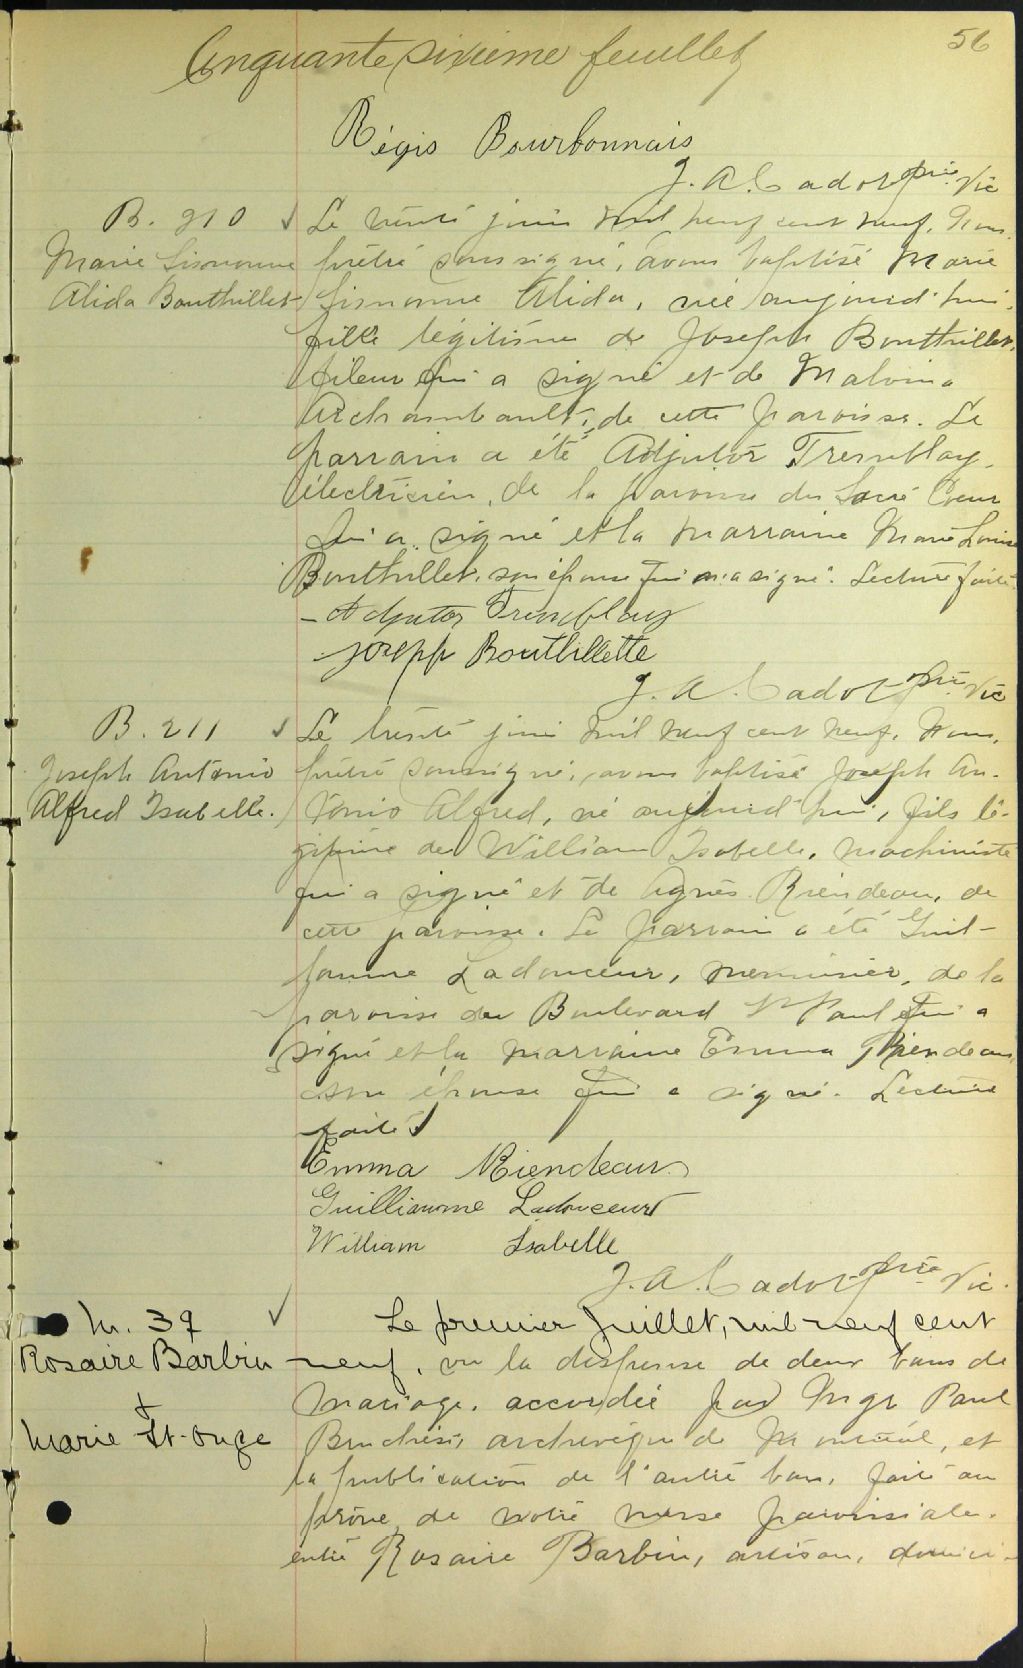 56
Cinquante sixième feuillet
Régis Bourbonnais
J. A. Cadot ptre Vic
B. 210
Marie Simonne
Alida Bouthillet
Le trente juin mil neuf cent neuf, Nous,
prêtre soussigné, avons baptisé Marie
Simonne Alida, née aujourd'hui,
fille légitime de Joseph Bouthillet,
fileur qui a signé et de Malvina
Archambault, de cette paroisse. Le
parrain a été Adjutor Tremblay,
électricien, de la paroisse du Sacré Coeur
qui a signé et la marraine Marie Louise
Bouthillet, son épouse qui n'a signé. Lecture faite.
Adjutor Tremblay
Joseph Bouthillette
J. A. Cadot ptre Vic
B. 211
Joseph Antonio
Alfred Isabelle.
Le trente juin mil neuf cent neuf, Nous,
prêtre soussigné, avons baptisé Joseph An-
tonio Alfred, né aujourd'hui, fils lé-
gitime de William Isabelle, machiniste
qui a signé et de Agnès Riendeau, de
cette paroisse. Le parrain a été Guil-
laume Ladouceur, menuisier, de la
paroisse du Boulevard St Paul qui a
signé et la marraine Emma Riendeau,
son épouse qui a signé. Lecture
faite.
Emma Riendeau
Guilliaume Ladouceur
William Isabelle
J. A. Cadot ptre Vic.
M. 39
Rosaire Barbin
+
Marie St-Onge
Le premier Juillet, mil neuf cent
neuf, vu la dispense de deux bans de
mariage, accordée par Mgr Paul
Bruchési, archevêque de Montréal, et
la publication de l'autre ban, faite au
prône de notre messe paroissiale.
entre Rosaire Barbin, artisan, domici-